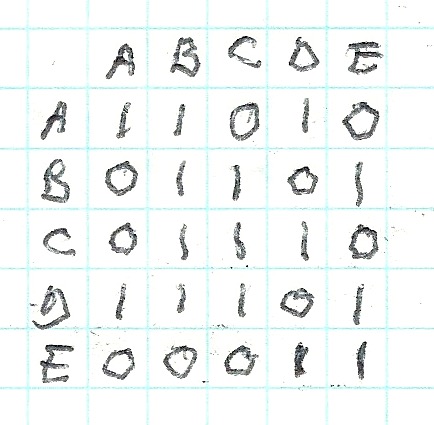 A B C D E
A 1 1 0 1 0
B 0 1 1 0 1
C 0 1 1 1 0
D 1 1 1 0 1
E 0 0 0 1 1